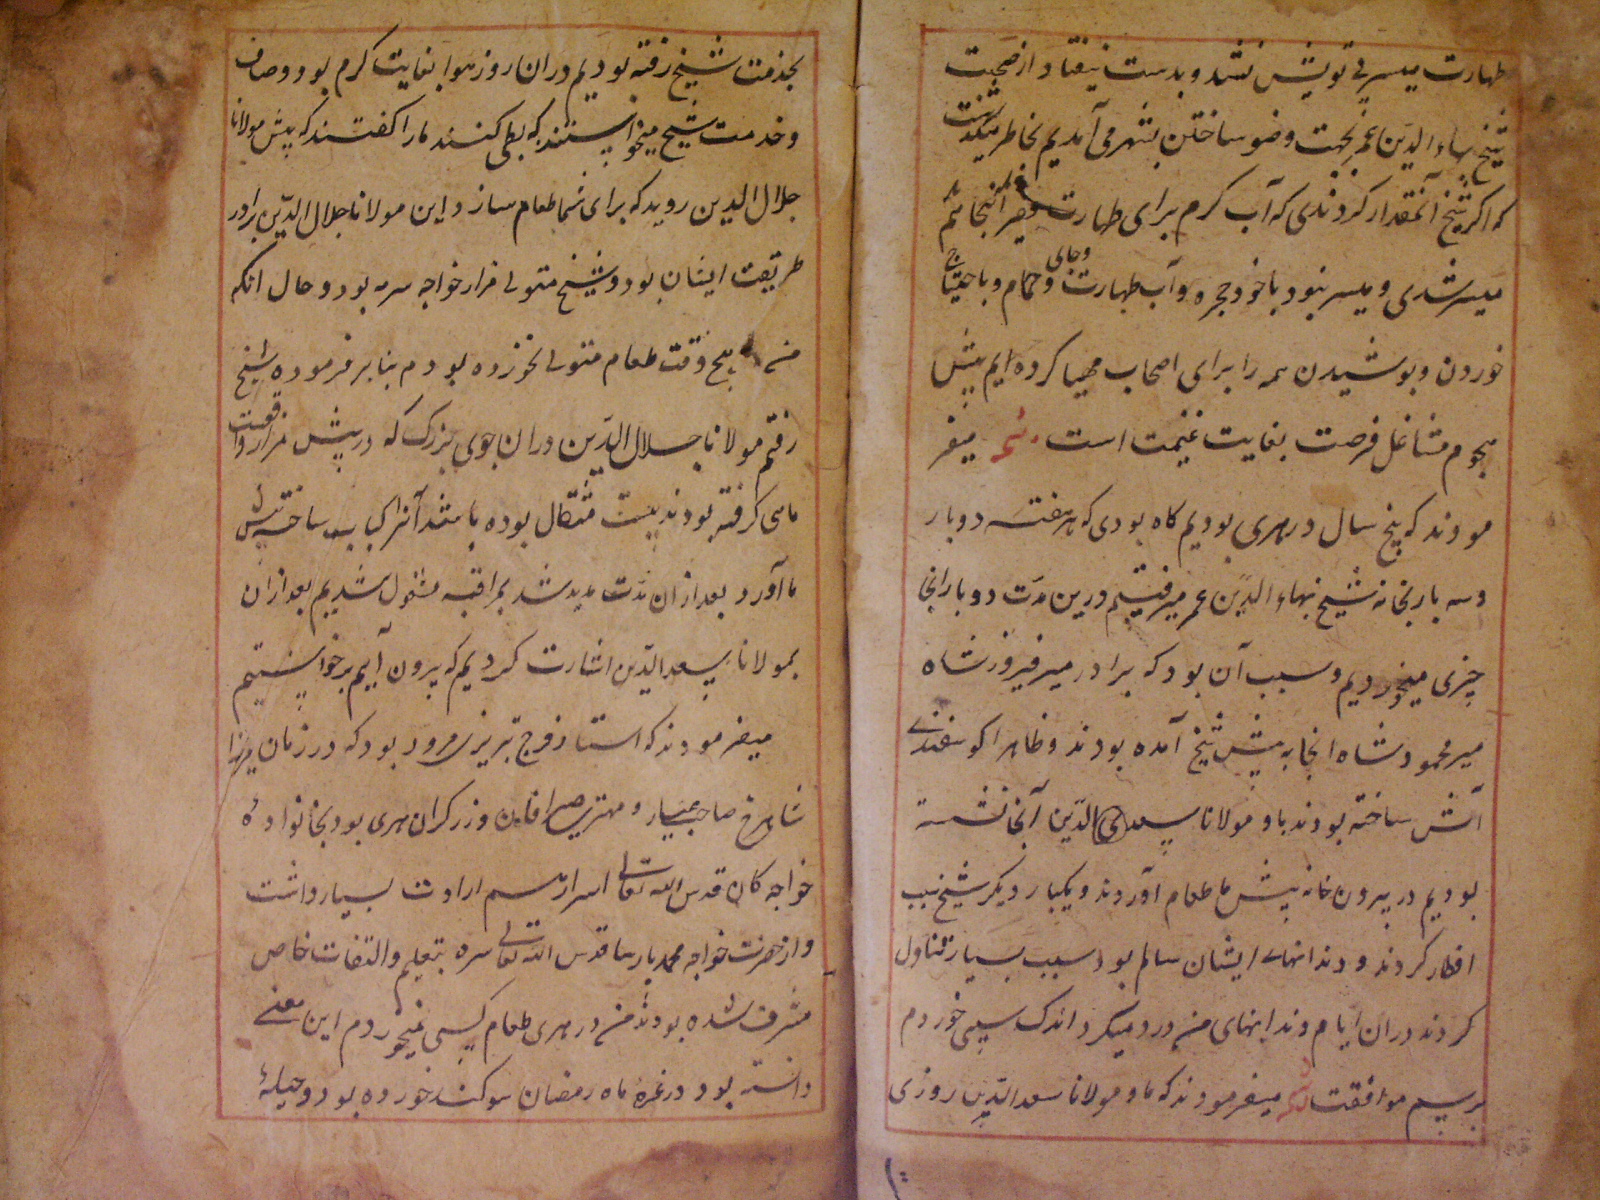 طهارت میسر
شیخ بهاء الدین عمر بجهت وضو ساختن بشهر می آمدیم بخاطر میگذشت
که اگر شیخ آنمقدار کردندی که آب گرم برای طهارت فقیر آنجا هم
میسر شدی و میسر نبود با خود حجره و آب طهارت و جای و حمام و ما یحتاج
خوردن و پوشیدن همه را برای اصحاب مهیا کرده ایم پیش
هجوم مشاغل فرصت بغایت غنیمت است میفر
مودند که پنج سال در هری بودیم گاه بودی که هر هفته دو بار
و سه بار بخانه شیخ بهاء الدین عمر میرفتیم درین مدت دو بار انجا
چیزی میخوردیم و سبب آن بود که برادر میر فیروزشاه
میر محمود شاه انجا به پیش شیخ آمده بودند و ظاهرا گوسفندی
آش ساخته بودند ما و مولانا سعد الدین آنجا نشسته
بودیم در بیرون خانه پیش ما طعام آوردند و یکبار دیگر شیخ سیب
افطار کردند و دندانهاء ایشان سالم بود سیب بسیار تناول
کردند در ان ایام دندانهای من درد میکرد اندک سیبی خوردم
برسم موافقت میفرمودند که ما و مولانا سعد الدین روزی
بخدمت شیخ رفته بودیم در ان روز هوا بغایت گرم بود و صاف
و خدمت شیخ میخواستند که کنند ما را گفتند که پیش مولانا
جلال الدین روید که برای شما طعام سازد این مولانا جلال الدین برادر
طریقت ایشان بود و شیخ متولی مزار خواجه سرمه بود و حال انکه
من هیچ وقت طعام متولی نخورده بودم بنابر فرموده شیخ
رفتم مولانا جلال الدین در ان جوی بزرگ که در پیش مزار واقعست
ماهی گرفته بودند بیست مثقال بوده باشد آنرا کباب ساخته پیش
ما آورد بعد ازان مدت مدید شد بمراقبه مشغول شدیم بعد ازان
بمولانا سعد الدین اشارت کردیم که بیرون آییم برخواستیم
میفرمودند که استاد فرج تبریزی مرود بود که در زمان میرزا
شاهرخ صاحب عیار و مهتر صرافان و زرگران هری بود بخانوادهٔ
خواجه کان قدس الله تعالی اسرارهم ارادت بسیار داشت
و از حضرت خواجه محمد پارسا قدس الله تعالی سره بتعلیم و التفات خاص
مشرف شده بودند من در هری طعام کسی نمیخوردم این معنی
دانسته بود در غرهٔ ماه رمضان سوگند خورده بود و حیلهٔ